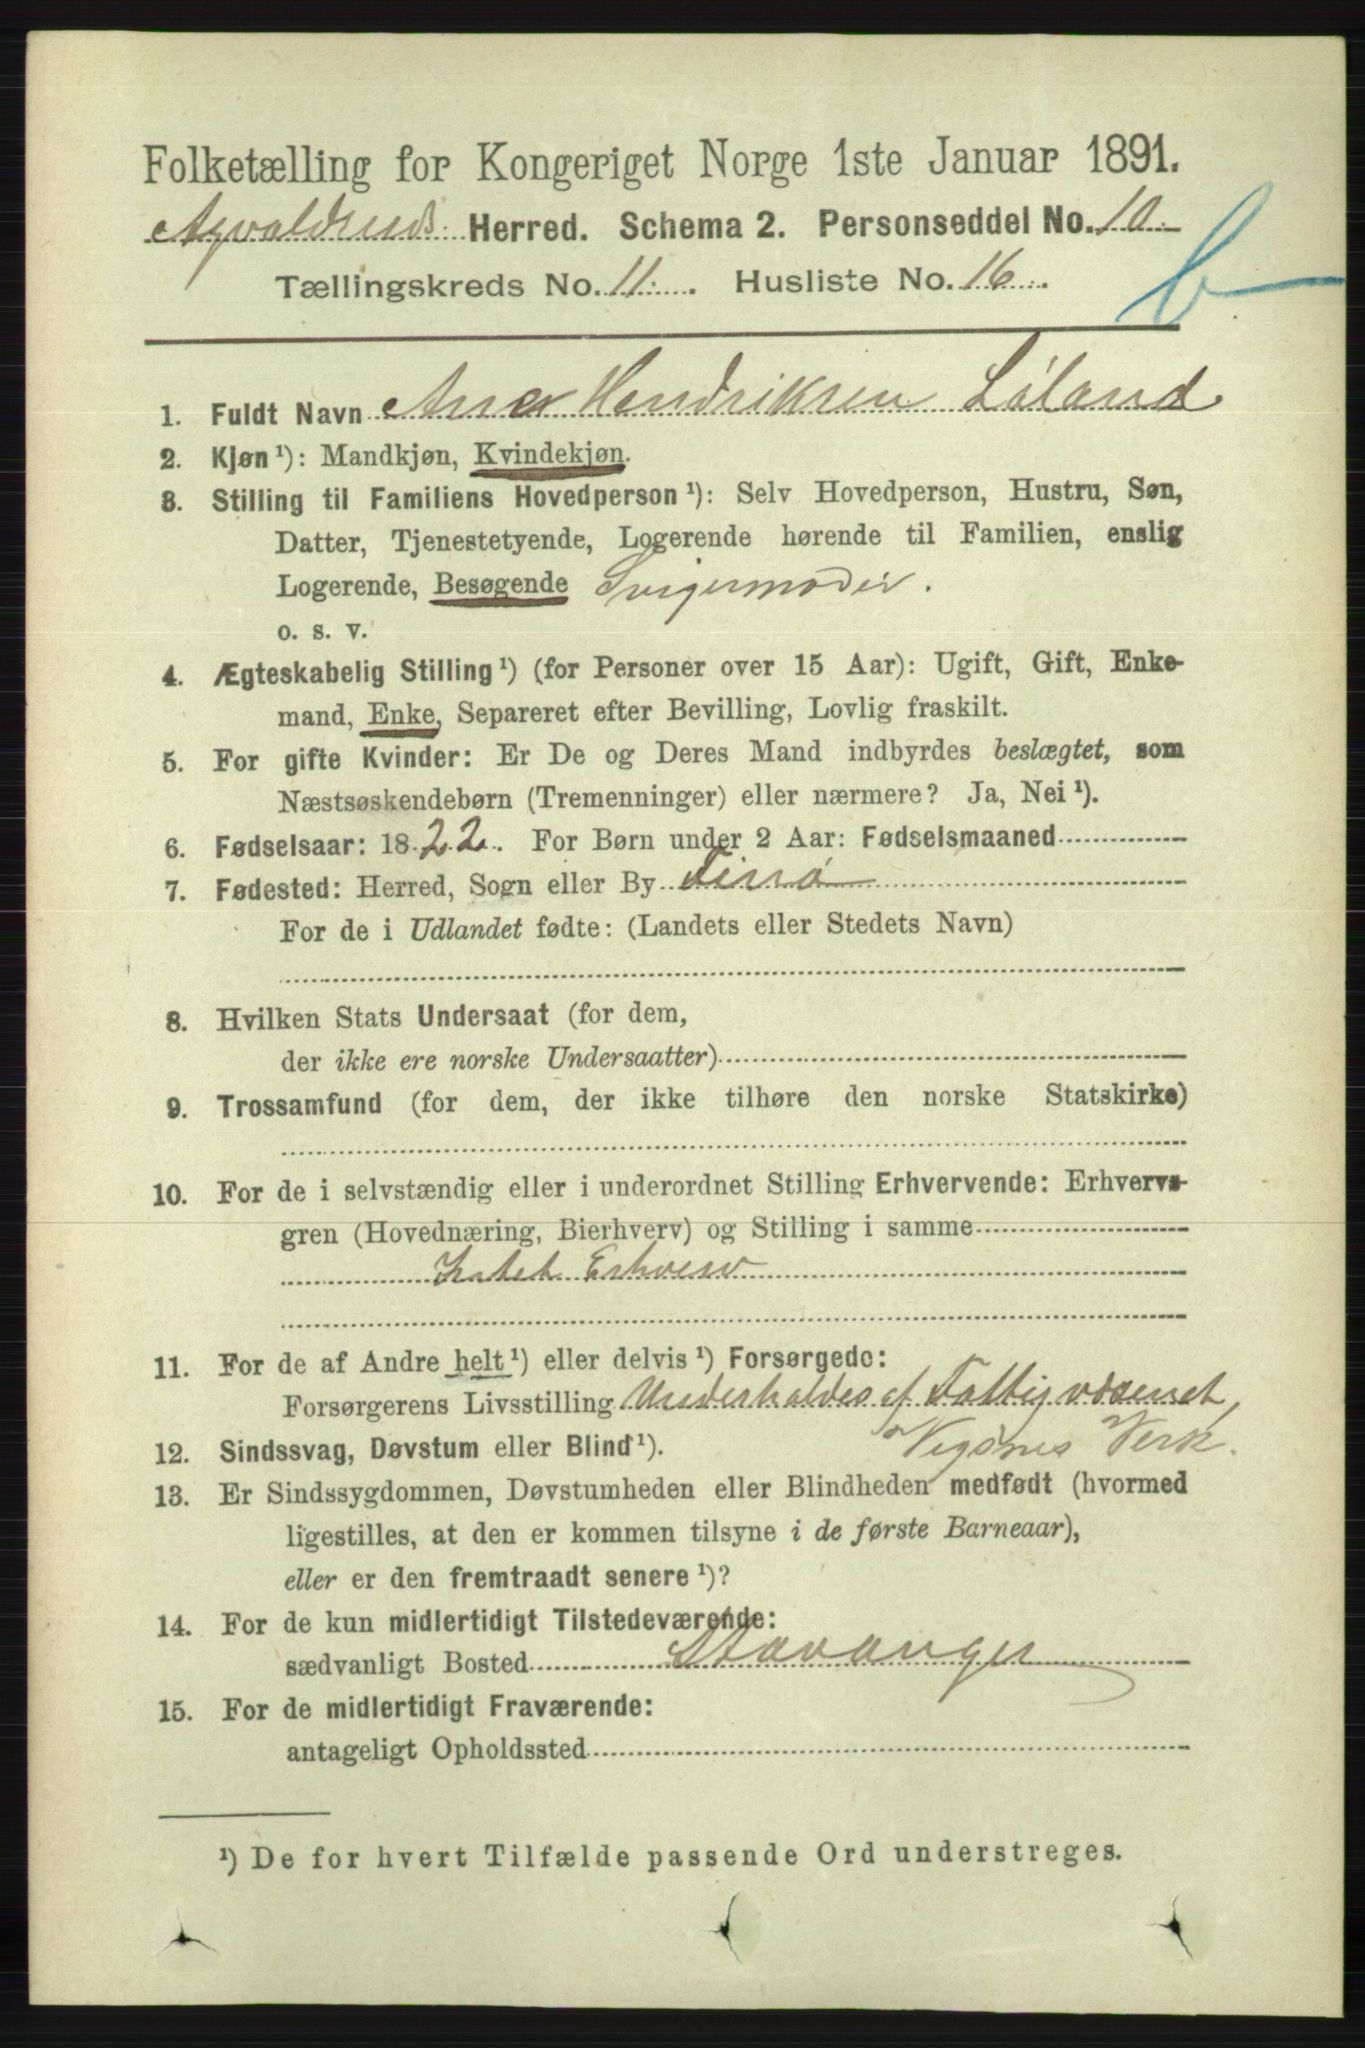 Folketælling for Kongeriget Norge 1ste Januar 1891.
Herred. Schema 2. Personseddel No. 10.
Tællingskreds No. 11. Husliste No. 16.
b
1. Fuldt Navn Ana Hendriksen Löland
2. Kjøn ¹): Mandkjøn, Kvindekjøn.
3. Stilling til Familiens Hovedperson ¹): Selv Hovedperson, Hustru, Søn,
Datter, Tjenestetyende, Logerende hørende til Familien, enslig
Logerende, Besøgende Svigermoder.
o. s. v.
4. Ægteskabelig Stilling ¹) (for Personer over 15 Aar): Ugift, Gift, Enke-
mand, Enke, Separeret efter Bevilling, Lovlig fraskilt.
5. For gifte Kvinder: Er De og Deres Mand indbyrdes beslægtet, som
Næstsøskendebørn (Tremenninger) eller nærmere? Ja, Nei ¹).
6. Fødselsaar: 1822. For Børn under 2 Aar: Fødselsmaaned
7. Fødested: Herred, Sogn eller By Finnø
For de i Udlandet fødte: (Landets eller Stedets Navn)
8. Hvilken Stats Undersaat (for dem,
der ikke ere norske Undersaatter)
9. Trossamfund (for dem, der ikke tilhøre den norske Statskirke)
10. For de i selvstændig eller i underordnet Stilling Erhvervende: Erhvervs-
gren (Hovednæring, Bierhverv) og Stilling i samme
Intet Erhverv
11. For de af Andre helt ¹) eller delvis ¹) Forsørgede:
Forsørgerens Livsstilling Underholdes af Fattigvæsenet,
12. Sindssvag, Døvstum eller Blind ¹). Vigsnes Verk.
13. Er Sindssygdommen, Døvstumheden eller Blindheden medfødt (hvormed
ligestilles, at den er kommen tilsyne i de første Barneaar),
eller er den fremtraadt senere ¹)?
14. For de kun midlertidigt Tilstedeværende:
sædvanligt Bosted Stavanger
15. For de midlertidigt Fraværende:
antageligt Opholdssted
¹) De for hvert Tilfælde passende Ord understreges.